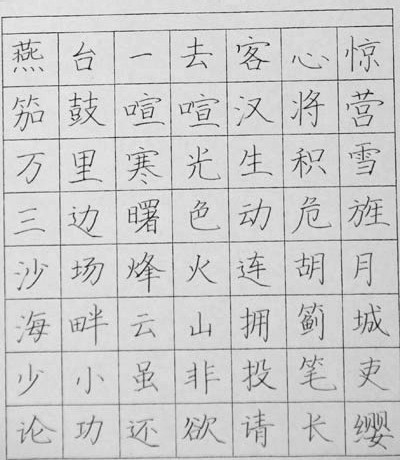 燕台一去客心惊
笳鼓喧喧汉将营
万里寒光生积雪
三边曙色动危旌
沙场烽火连胡月
海畔云山拥蓟城
少小虽非投笔吏
论功还欲请长缨